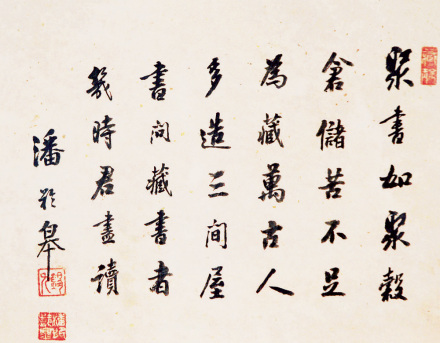 聚書如聚穀
倉儲苦不足
為藏萬古人
多造三間屋
書問藏書者
幾時君盡讀
潘齡皋